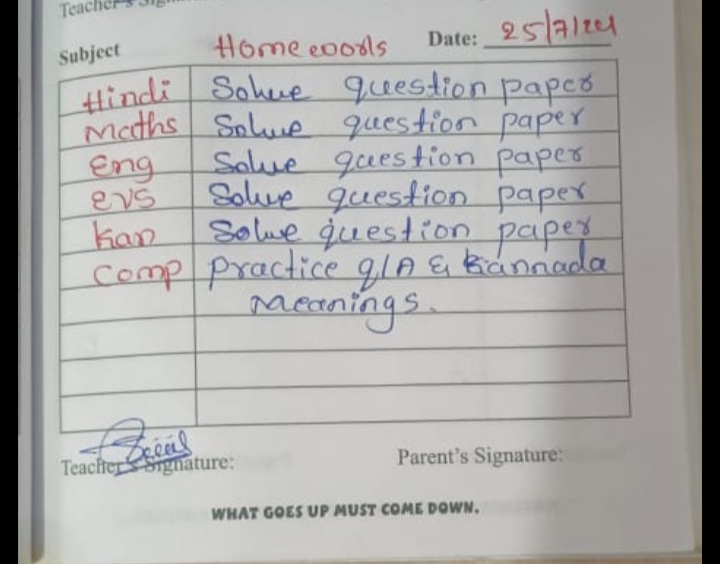 Teacher's Signature
Subject Homework Date: 25/7/24
Hindi Solve question paper
Maths Solve question paper
Eng Solve question paper
EVS Solve question paper
Kan Solve question paper
Comp Practice Q/A & Kannada
Meanings.
Teacher's Signature: Parent's Signature:
WHAT GOES UP MUST COME DOWN.